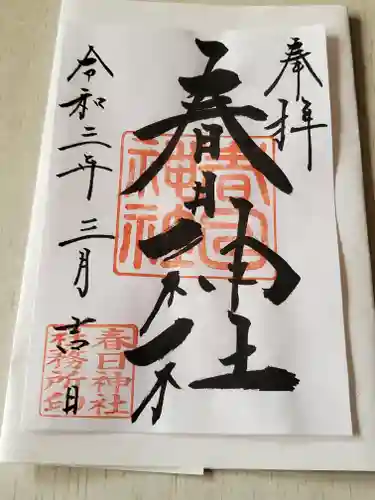 奉拝
春日神社
令和二年 三月 吉日
春日
神社
春日神社
社務所印